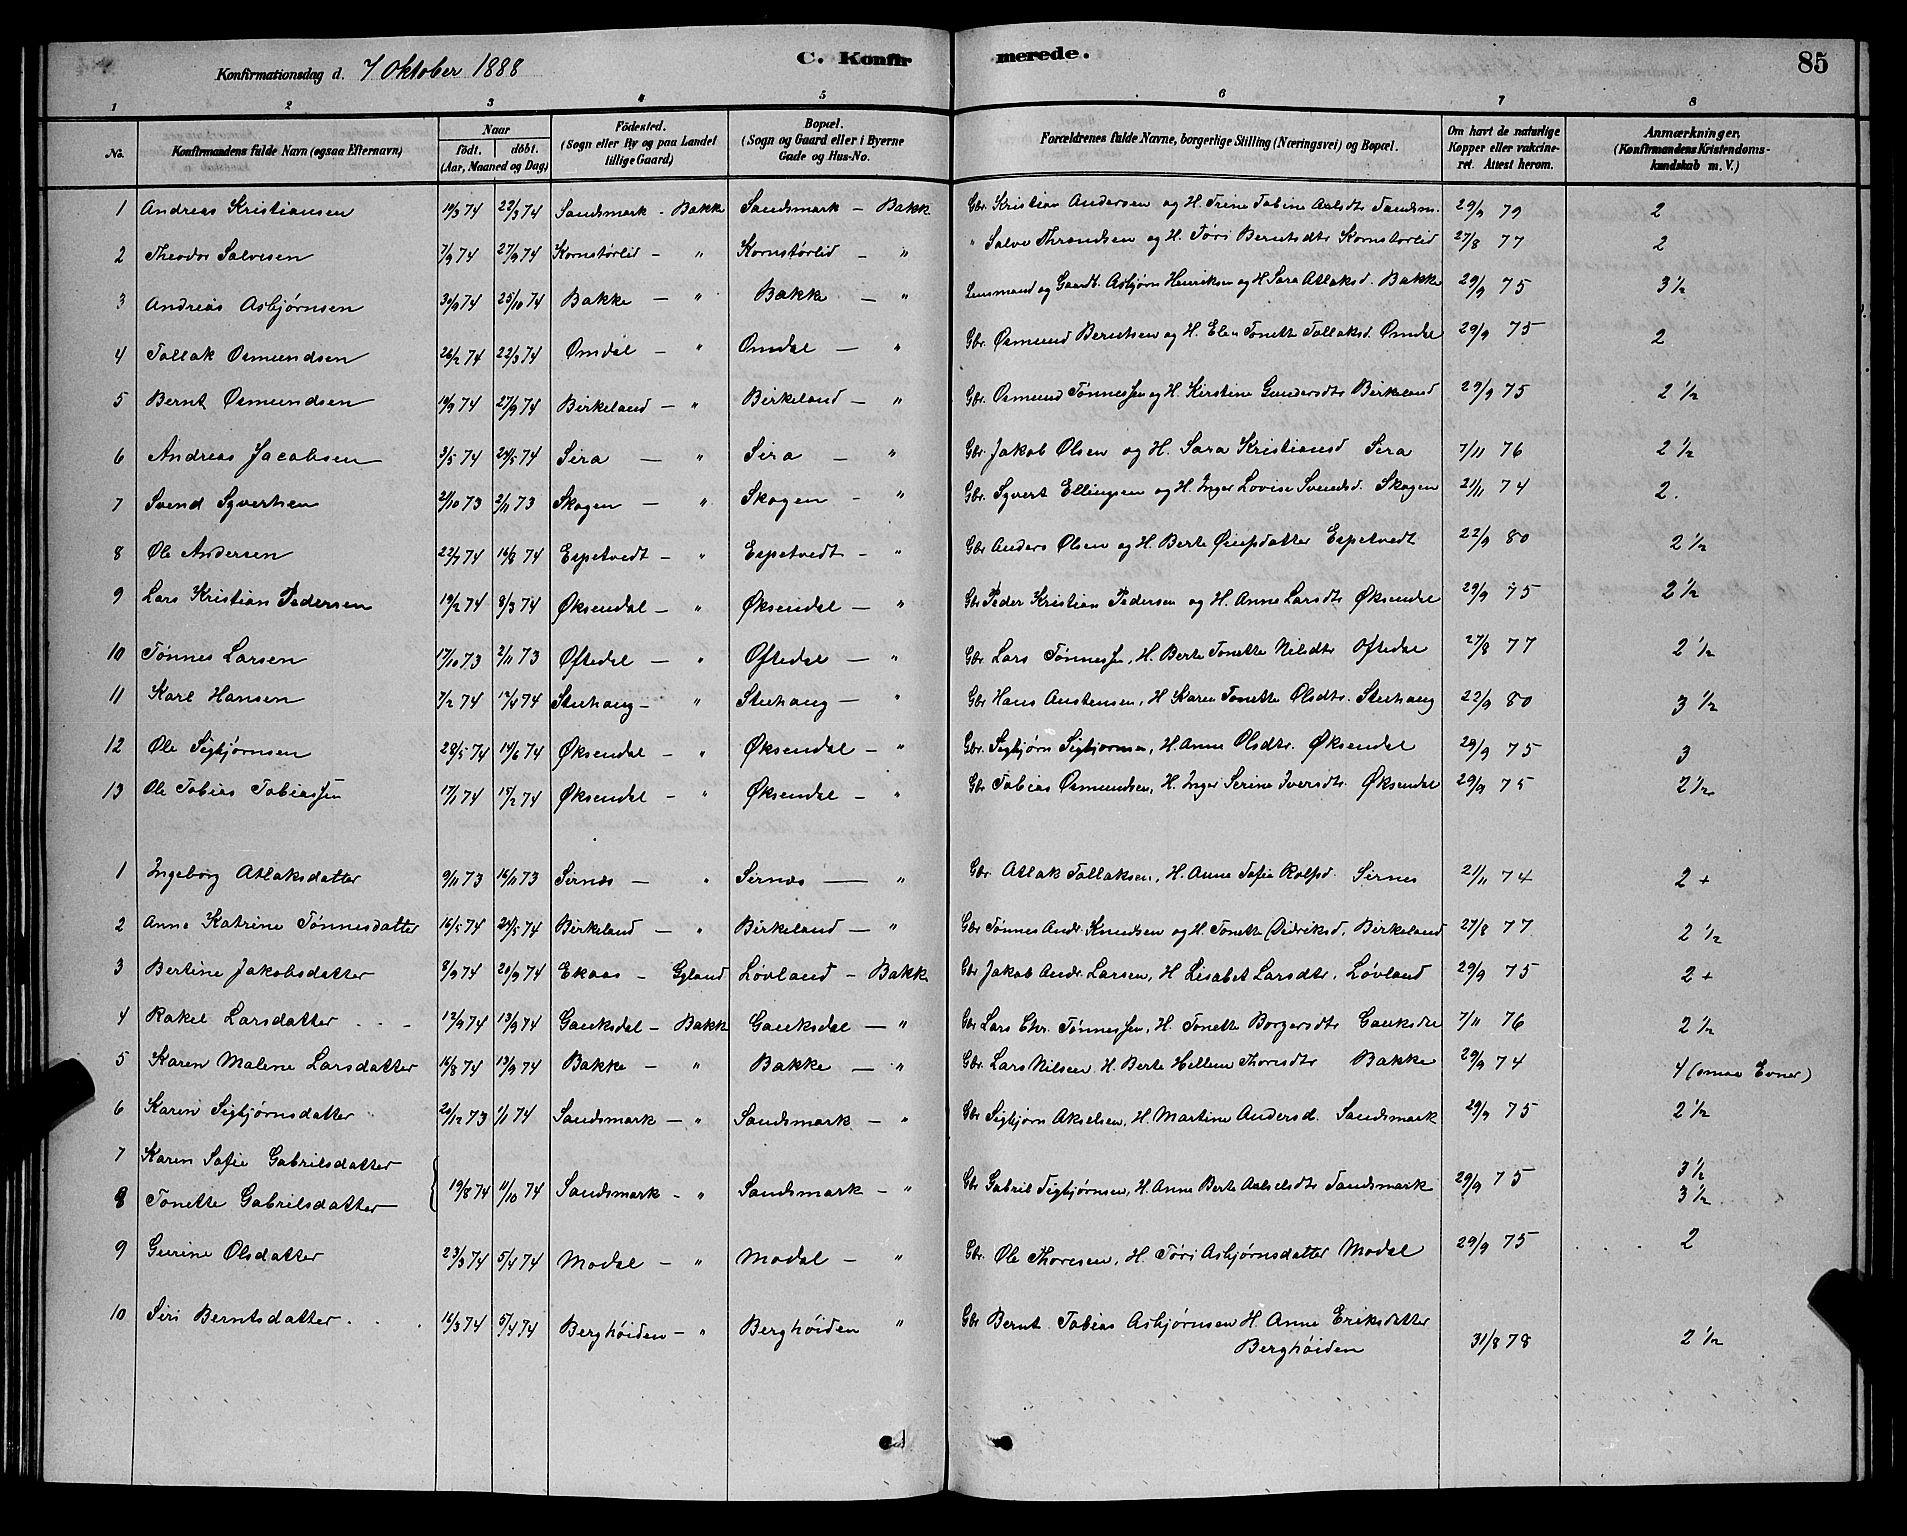 Konfirmationsdag d. 7 Oktober 1888 C. Konfirmerede. 85
1 2 3 4 5 6 7 8
No. Konfirmandens fulde Navn (ogsaa Efternavn) Naar født. døbt. (Aar, Maaned og Dag) Fødested. (Sogn eller By og paa Landet tillige Gaard) Bopæl. (Sogn og Gaard eller i Byerne Gade og Hus-No. Forældrenes fulde Navne, borgerlige Stilling (Næringsvei) og Bopæl. Om havt de naturlige Kopper eller vakcineret. Attest herom. Anmærkninger. (Konfirmandens Kristendomskundskab m. V.)
1 Andreas Kristiansen 19/3 74 22/3 74 Sandsmark - Bakk Sandsmark - Bakk Gbr. Kristian Andersen og H. Trine Tobine Axlsdtr Sandsm. 29/9 79 2
2 Theodor Salvesen 7/9 74 27/9 74 Kornstørlid - " Kornstørlid - " " Salve Throndsen og H. Tøri Berntsdtr Kornstørlid 27/8 77 2
3 Andreas Asbjørnsen 30/9 74 25/10 74 Bakke - " Bakke - " Lensmand og Gaardb. Asbjørn Henriksen og H Sara Atlaksd. Bakke 29/9 75 3 1/2
4 Tollak Osmundsen 26/2 74 22/3 74 Omdal - " Omdal - " Gbr. Osmund Berntsen og H. Elen Tonette Tollaksd. Omdal 29/9 75 2
5 Bernt Osmundsen 19/9 74 27/9 74 Birkeland - " Birkeland - " Gbr. Osmund Tønnessen og H. Kirstine Gundersdtr Birkeland 29/9 75 2 1/2
6 Andreas Jacobsen 3/5 74 24/5 74 Sira - " Sira - " Gbr. Jakob Olsen og H. Sara Kristiansd Sira 7/11 76 2 1/2
7 Svend Syvertsen 21/10 73 2/11 73 Skogen - " Skogen - " Gbr. Syvert Ellingsen og H. Inger Lovise Svendsd. Skogen 21/11 74 2.
8 Ole Andersen 22/7 74 16/8 74 Espetvedt - " Espetvedt - " Gbr Anders Olsen og H. Berte Espetvedt 22/9 80 2 1/2
9 Lars Kristian Pedersen 19/2 74 8/3 74 Øksendal - " Øksendal - " Gbr Peder Kristian Pedersen og H. Anne Larsdtr Øksendal 29/9 75 2 1/2
10 Tønnes Larsen 17/10 73 2/11 73 Oftedal - " Oftedal - " Gbr Lars Tønnessen, H. Berte Tonette Nilsdtr Oftedal 27/8 77 2 1/2
11 Karl Hansen 7/2 74 12/4 74 Steehaug - " Steehaug - " Gbr Hans Austensen, H Karen Tonette Olsdtr. Steehaug 22/9 80 3 1/2
12 Ole Sigbjørnsen 28/5 74 14/6 74 Øksendal - " Øksendal - " Gbr. Sigbjørn Sigbjørnsen, H. Anne Olsdtr. Øksendal 29/9 75 3
13 Ole Tobias Tobiassen 17/1 74 15/2 74 Øksendal - " Øksendal - " Gbr Tobias Osmundsen, H. Inger Serine Iversdtr. Øksendal 29/9 75 2 1/2
1 Ingeborg Atlaksdatter 9/11 73 16/11 73 Sirnæs - " Sirnæs - " Gbr. Atlak Tollaksen, H. Anne Sofie Rolfsd. Sirnes 21/11 74 2 +
2 Anne Katrine Tønnesdatter 16/5 74 24/5 74 Birkeland - " Birkeland - " Gbr Tønnes Andr. Knudsen og H. Tonette Didriksd. Birkeland 27/8 77 2 1/2
3 Bertine Jakobsdatter 8/9 74 20/9 74 Ekaas - Gyland Løvland - Bakk Gbr Jakob Andr. Larsen, H Lisabet Larsdtr. Løvland 29/9 75 2 +
4 Rakel Larsdatter 12/9 74 13/9 74 Gauksdal - Bakk Gauksdal - " Gbr Lars Chr. Tønnessen, H. Tonette Borgersdtr Gauksdal 7/11 76 2 1/2
5 Karen Malene Larsdatter 16/8 74 13/9 74 Bakke - " Bakke - " Gbr. Lars Nilsen H. Berte Hellene Thorsdtr Bakke 29/9 74 4 (smaa Evner)
6 Karen Sigbjørnsdatter 20/12 73 1/1 74 Sandsmark - " Sandsmark - " Gbr Sigbjørn Akselsen, H. Martine Andersd. Sandsmark 29/9 75 2 1/2
7 Karen Sofie Gabrilsdatter 3 1/2
8 Tonette Gabrilsdatter 19/8 74 11/10 74 Sandsmark - " Sandsmark - " Gbr Gabril Sigbjørnsen, H. Anne Berte Axlsdtr Sandsmark 29/9 75 3 1/2
9 Gurine Olsdatter 23/3 74 5/4 74 Modal - " Modal - " Gbr. Ole Thorsen, H. Tøri Asbjørnsdatter Modal 29/9 75 2
10 Siri Berntsdatter 16/3 74 5/4 74 Berghøiden - " Berghøiden " Gbr Bernt Tobias Asbjørnsen H. Anne Eriksdatter
Berghøiden 31/8 78 2 1/2